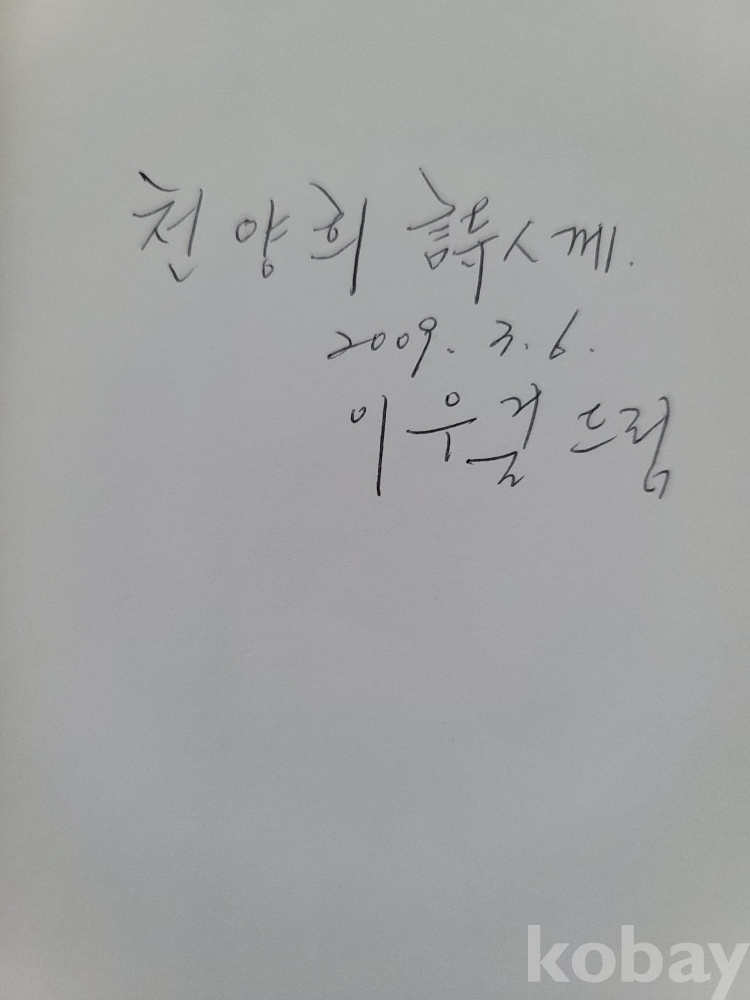 천양희 詩人께.
2009. 3. 6.
이우걸 드림
kobay